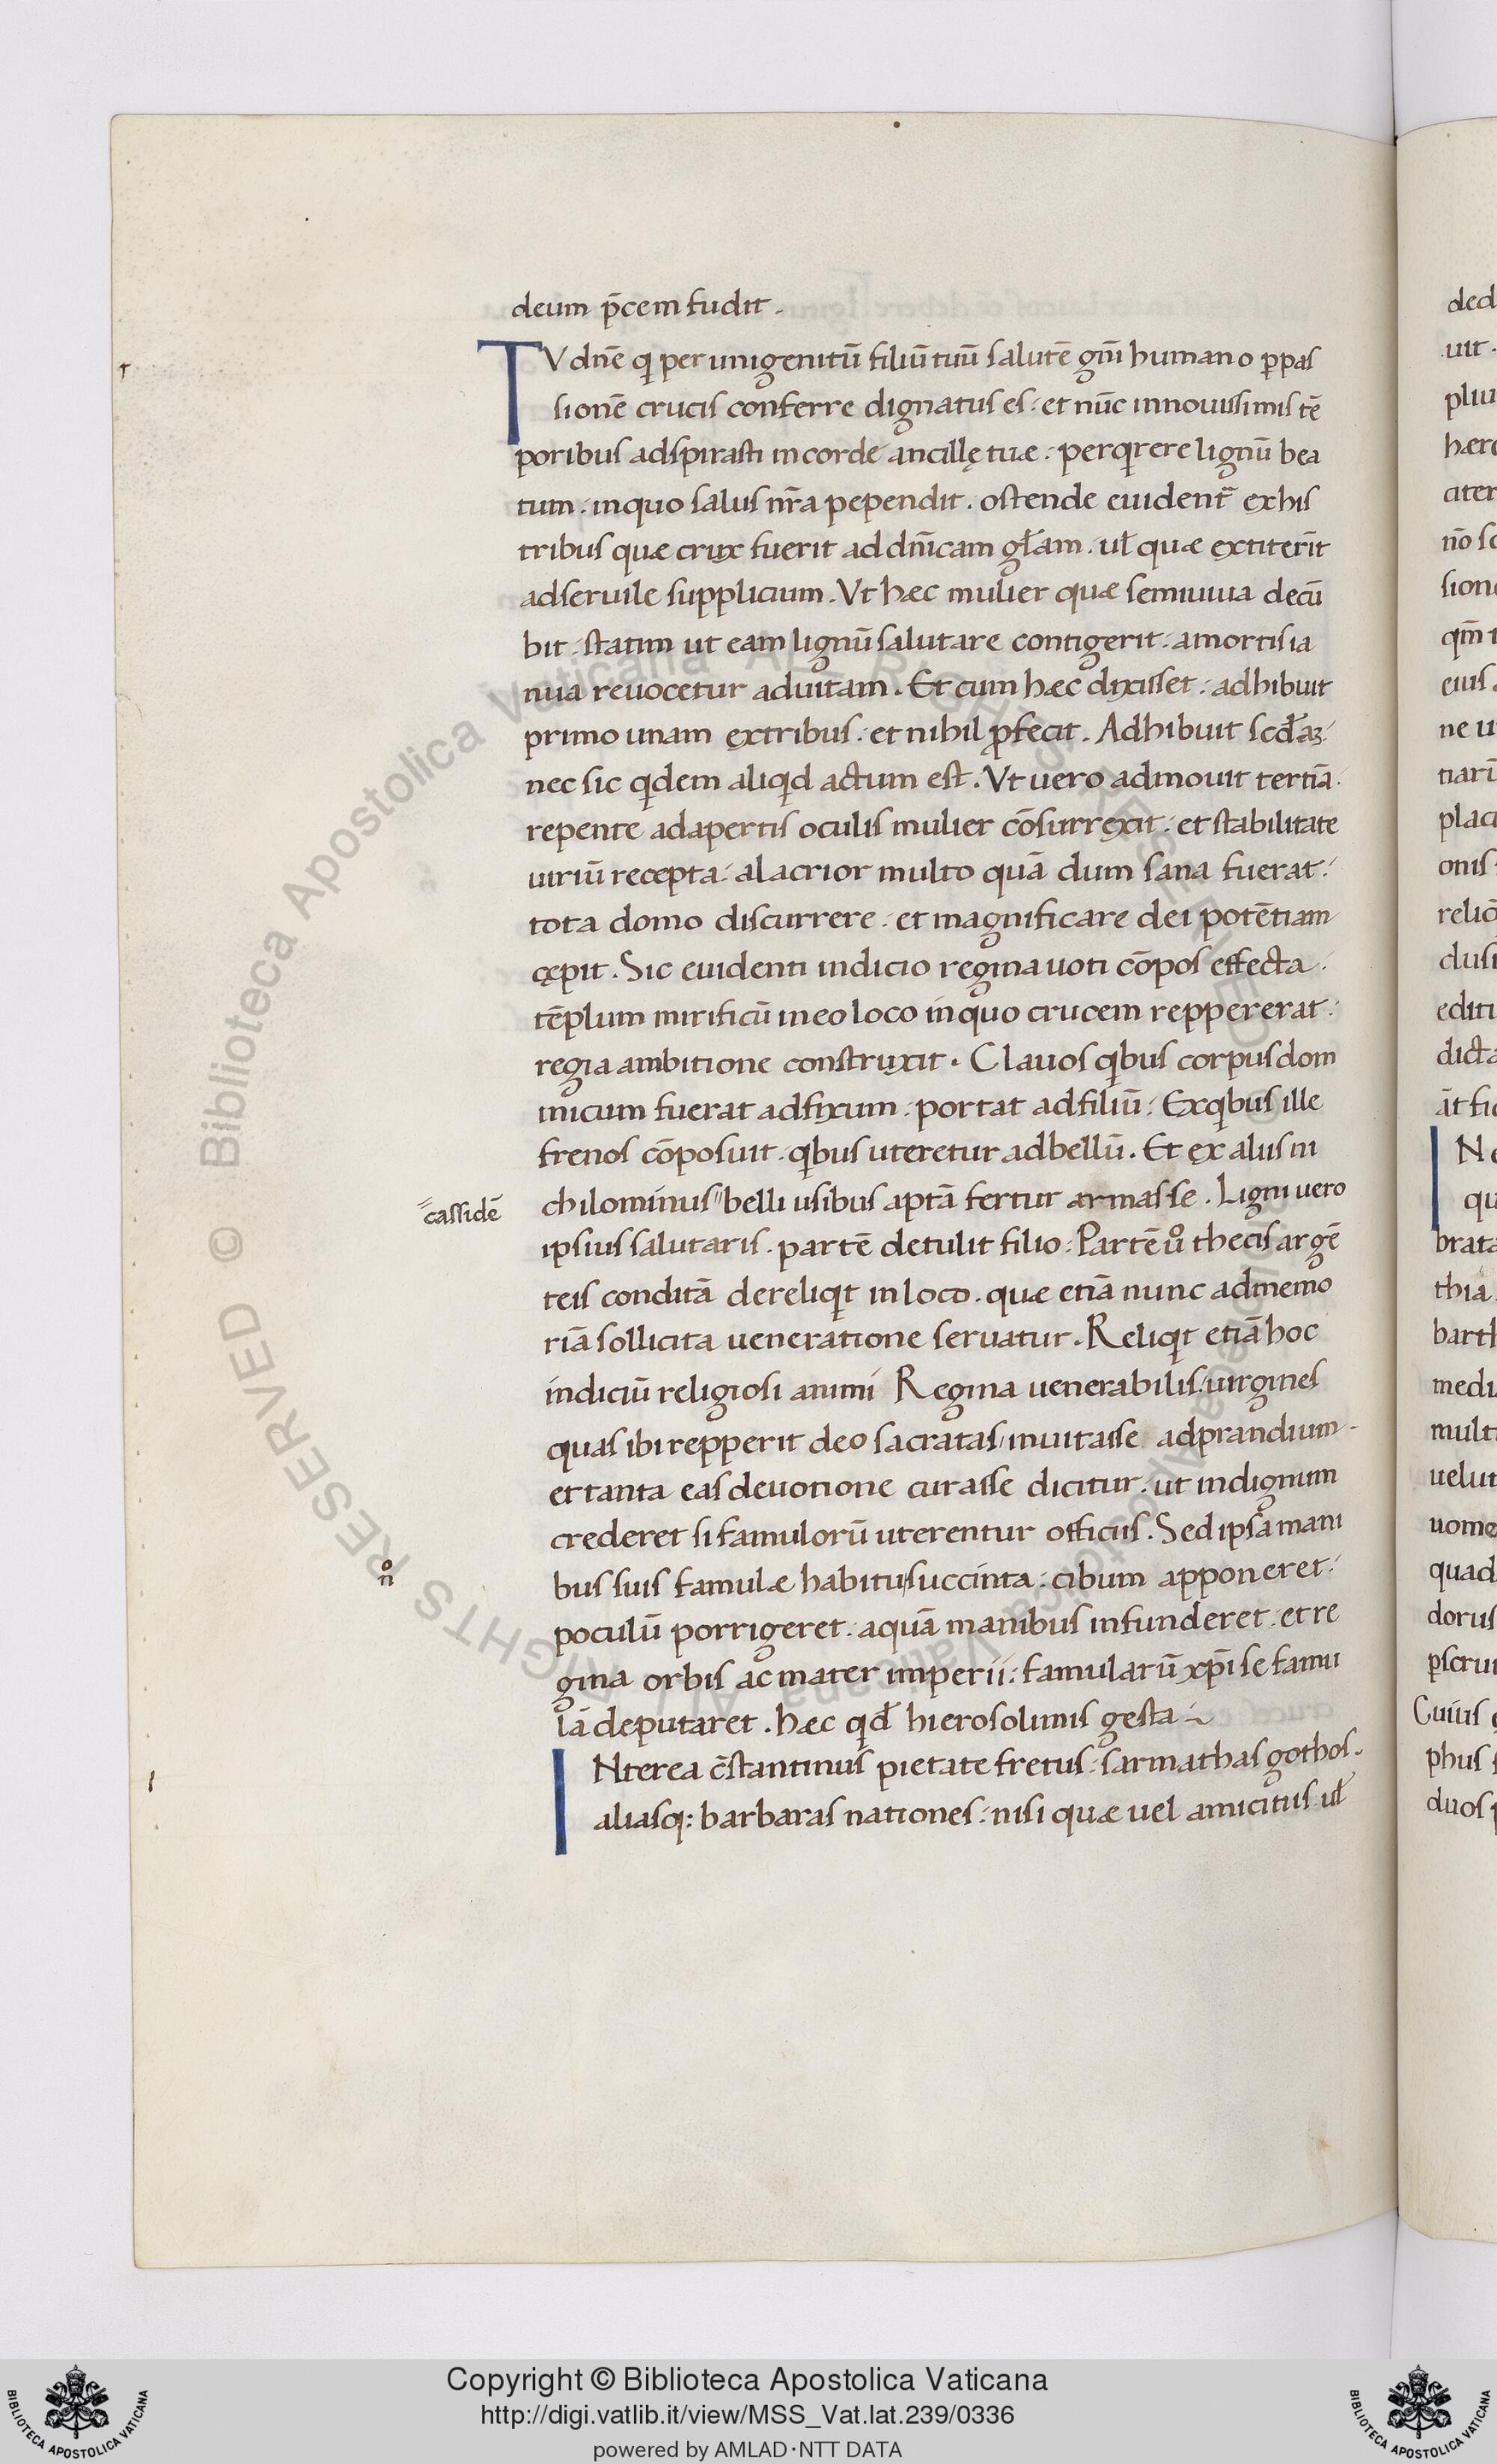 deum p̄cem fudit.
TV dnē qi per unigenitū filiū tuū salutē gn̄i humano ꝑpas
sionē crucis conferre dignatus es: et nūc innouissimis tē
poribus adspirasti incorde ancillę tuæ: perqirere lignū bea
tum: inquo salus nr̄a pependit. ostende euidentr̄ exhis
tribus quæ crux fuerit addnīcam gl̄am. ul̄ quæ extiterīt
adseruile supplicium. Vt hæc mulier quæ semiuiua decū
bit: statim ut eam lignū salutare contigerit: amortis ia
nua reuocetur aduitam. Et cum hæc dixisset: adhibuit
primo unam extribus: et nihil ꝓfecit. Adhibuit scd̄aꝫ:
nec sic qidem aliqid actum est. Vt uero admouit tertiā.
repente adapertis oculis mulier cōsurrexit: et stabilitate
uiriū recepta: alacrior multo quā dum sana fuerat:
tota domo discurrere: et magnificare dei potētiam
cępit. Sic euidenti indicio regina uoti cōpos effecta:
tēplum mirificū ineo loco inquo crucem reppererat:
regia ambitione construxit. Clauos qibus corpus dom
inicum fuerat adfixum: portat adfiliū: Exqibus ille
frenos cōposuit: qibus uteretur adbellū. Et ex aliis ni
cassidē
chilominus belli usibus aptā fertur armasse. Ligni uero
ipsius salutaris. partē detulit filio: Partē uͦ thecis argē
teis conditā dereliqit inloco. quæ etiā nunc admemo
riā sollicita ueneratione seruatur. Reliqit etiā hoc
indiciū religiosi animi Regina uenerabilis: uirgines
quas ibi repperit deo sacratas inuitasse adprandium.
et tanta eas deuotione curasse dicitur: ut indignum
crederet si famulorū uterentur officiis. Sed ipsa mani
bus suis famulæ habitu succinta: cibum apponeret:
poculū porrigeret: aquā manibus infunderet: et re
gina orbis ac mater imperii: famularū xp̄i se famu
lā deputaret. hæc qid̄ hierosolimis gesta
INterea c̄stantinus pietate fretus: sarmathas gothos.
aliasq: barbaras nationes: nisi quæ uel amicitiis ul̄
Copyright © Biblioteca Apostolica Vaticana
http://digi.vatlib.it/view/MSS_Vat.lat.239/0336
powered by AMLAD·NTT DATA